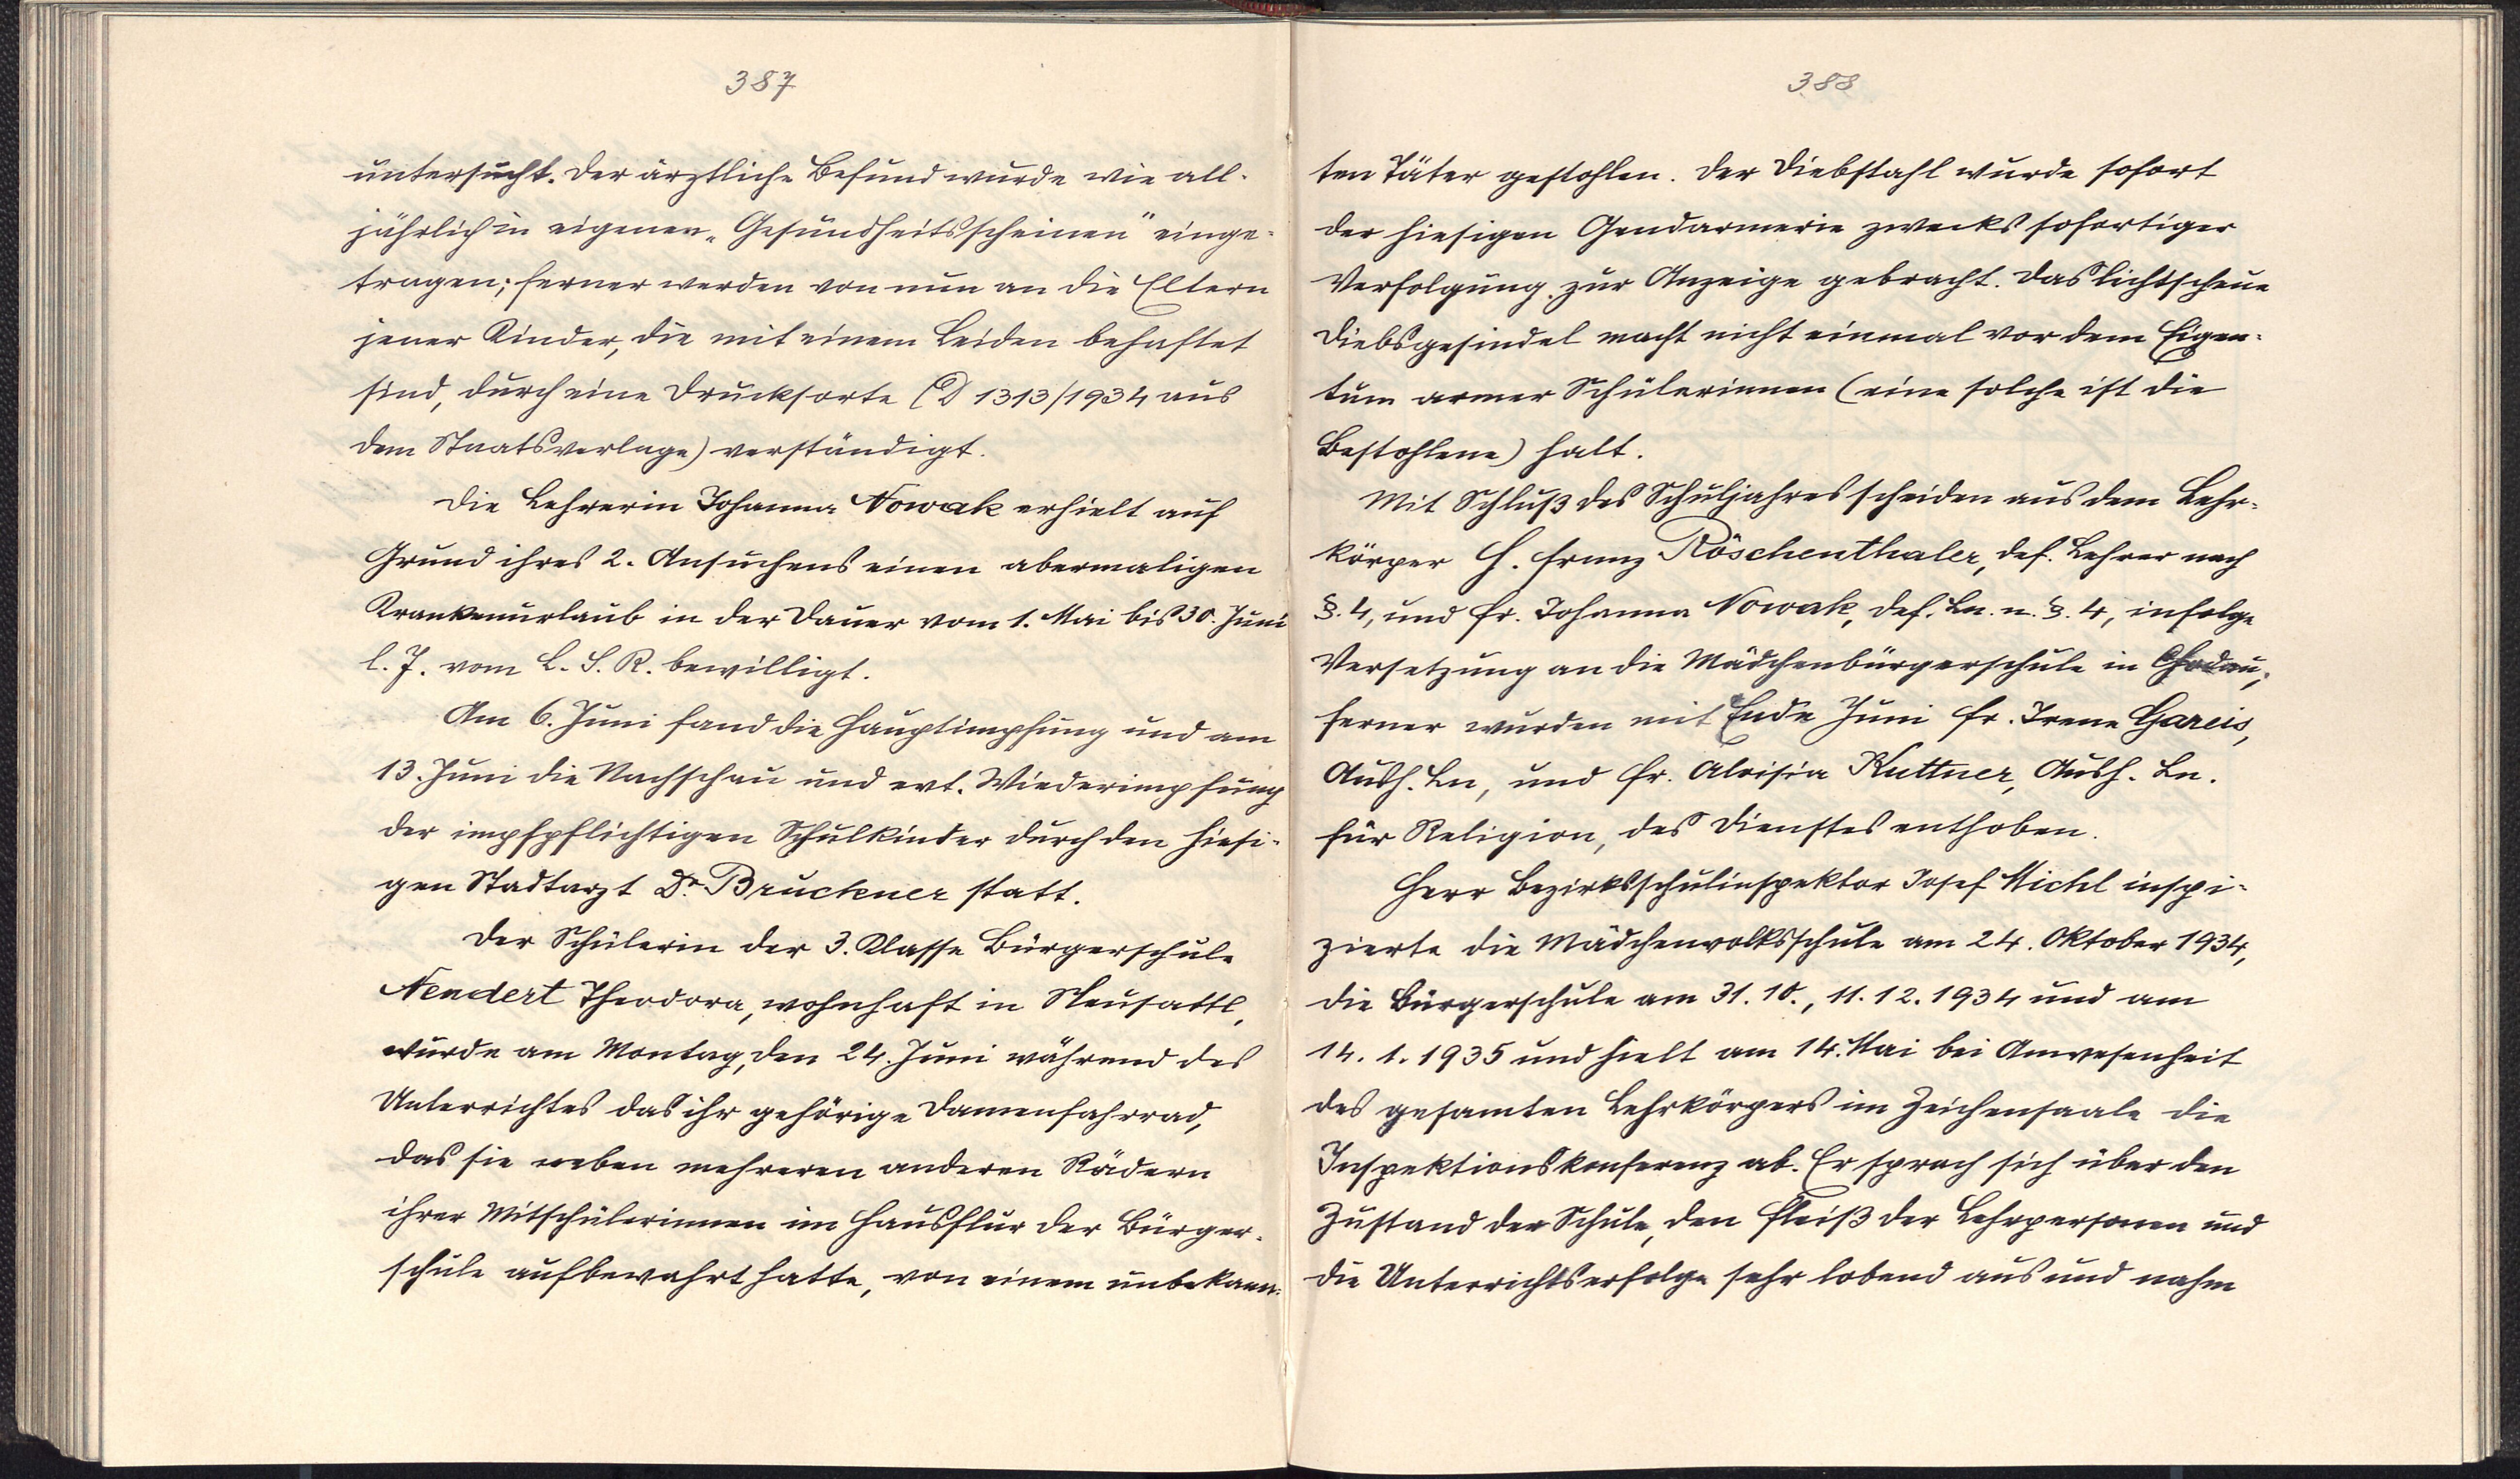 387
untersucht. Der ärztliche Befund wurde wie all-
jährlich in eigenen „Gesundheitsscheinen" einge-
tragen; ferner werden von nun an die Eltern
jener Kinder, die mit einem Leiden behaftet
sind, durch eine Drucksorte (D 1313/1934 aus
dem Staatsverlage) verständigt.
Die Lehrerin Johanna Nowak erhielt auf
Grund ihres 2. Ansuchens einen abermaligen
Krankenurlaub in der Dauer vom 1. Mai bis 30. Juni
l. J. vom L. S. R. bewilligt.
Am 6. Juni fand die Hauptimpfung und am
13. Juni die Nachschau und evt. Wiederimpfung
der impfpflichtigen Schulkinder durch den hiesi-
gen Stadtarzt Dr. Bruckner statt.
Der Schülerin der 3. Klasse Bürgerschule
Nendert Theodora, wohnhaft in Neusattl,
wurde am Montag, den 24. Juni während des
Unterrichtes das ihr gehörige Damenfahrrad,
das sie neben mehreren anderen Rädern
ihrer Mitschülerinnen im Hausflur der Bürger-
schule aufbewahrt hatte, von einem unbekann-
388
ten Täter gestohlen. Der Diebstahl wurde sofort
der hiesigen Gendarmerie zwecks sofortiger
Verfolgung zur Anzeige gebracht. Das lichtscheue
Diebsgesindel macht nicht einmal vor dem Eigen-
tum armer Schülerinnen (eine solche ist die
Bestohlene) halt.
Mit Schluß des Schuljahres scheiden aus dem Lehr-
körper H. Franz Röschenthaler, def. Lehrer nach
§. 4, und Fr. Johanna Nowak, def. Ln. n. §. 4, infolge
Versetzung an die Mädchenbürgerschule in Chodau;
ferner wurden mit Ende Juni Fr. Irene Gareis,
Aush. Ln, und Fr. Aloisia Kuttner, Aush. Ln.
für Religion, des Dienstes enthoben.
Herr Bezirksschulinspektor Josef Michl inspi-
zierte die Mädchenvolksschule am 24. Oktober 1934,
die Bürgerschule am 31. 10., 11. 12. 1934 und am
14. 1. 1935 und hielt am 14. Mai bei Anwesenheit
des gesamten Lehrkörpers im Zeichensaale die
Inspektionskonferenz ab. Er sprach sich über den
Zustand der Schule, den Fleiß der Lehrpersonen und
die Unterrichtserfolge sehr lobend aus und nahm